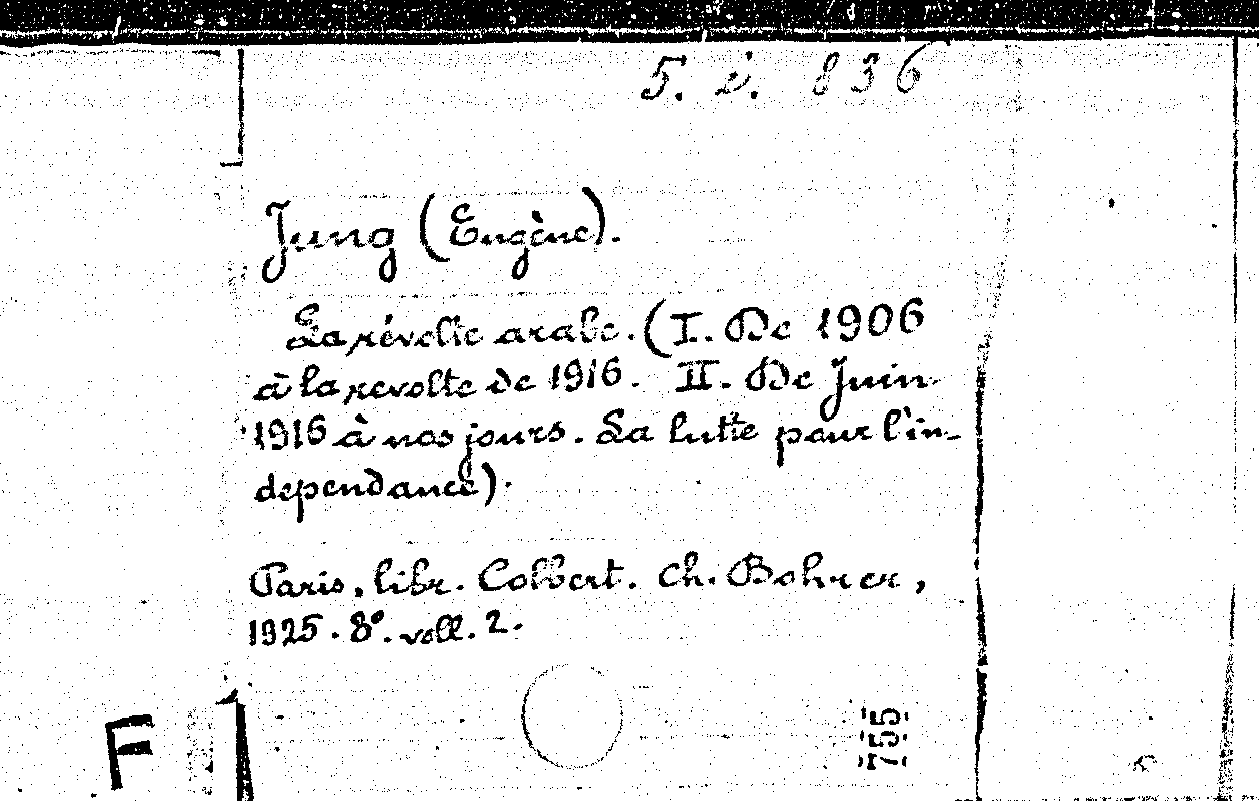 5. i. 836
Jung (Eugène).
La révolte arabe. (I. De 1906
à la revolte de 1916. II. De Juin
1916 à nos jours. La lutte pour l'in-
dependance).
Paris, libr. Colbert. Ch. Bohrer,
1925. 8º. voll. 2.
F
755